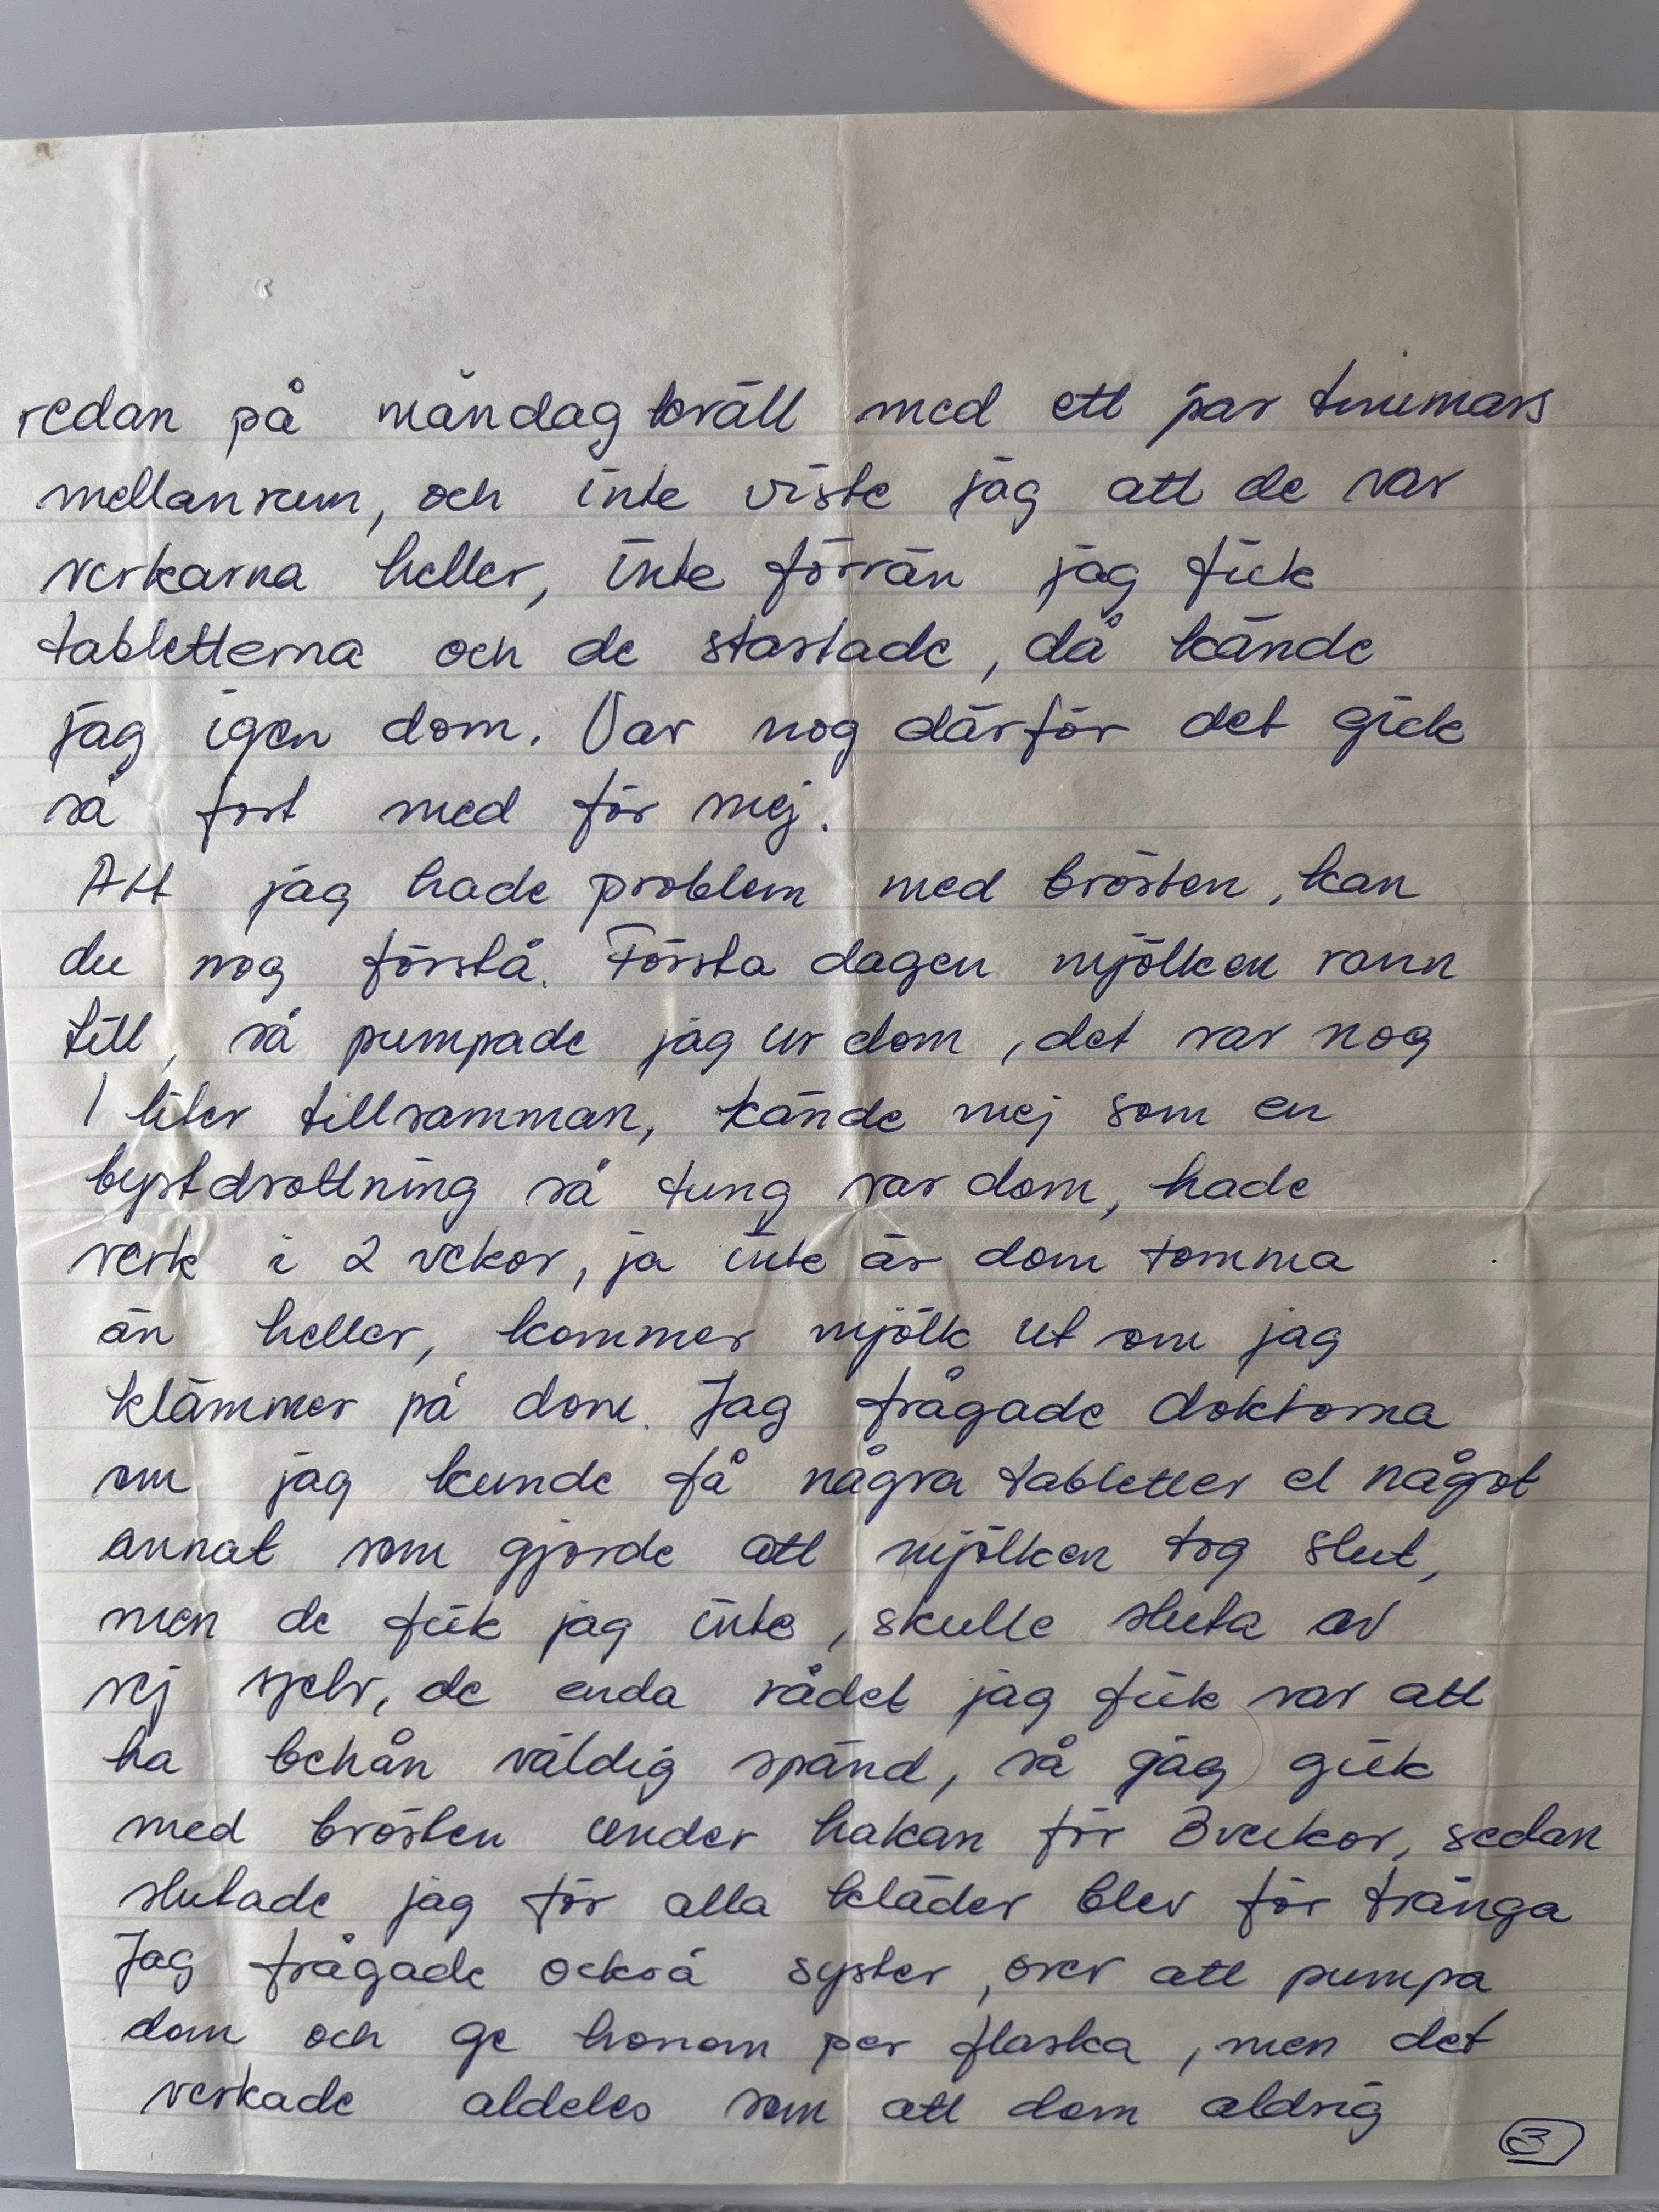 redan på måndag kväll med ett par timmars
mellanrum, och inte viste jag att de var
verkarna heller, inte förrän jag fick
tabletterna och de startade, då kände
jag igen dom. Var nog därför det gick
så fort med för mej.
Att jag hade problem med brösten, kan
du nog förstå. Första dagen mjölken rann
till, så pumpade jag ur dom, det var nog
1 liter tillsamman, kände mej som en
bystdrottning så tung var dom, hade
verk i 2 vekor, ja inte är dom tomma
än heller, kommer mjölk ut om jag
klämmer på dom. Jag frågade doktorna
om jag kunde få några tabletter el något
annat som gjorde att mjölken tog slut,
men de fick jag inte, skulle sluta av
sej sjelv, de enda rådet jag fick var att
ha behån väldig spänd, så jag gick
med brösten under hakan för 3 veckor, sedan
slutade jag för alla kläder blev för trånga
Jag frågade också syster, över att pumpa
dom och ge honom per flaska, men det
verkade aldeles som att dom aldrig
3